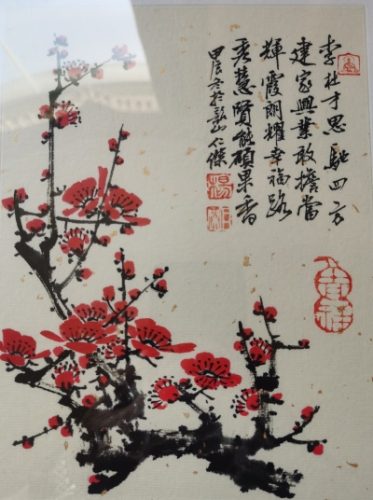 李杜才思馳四方
建家興業敢擔當
輝霞朗耀幸福路
秀慧賢能碩果香
甲辰冬於山仁傑